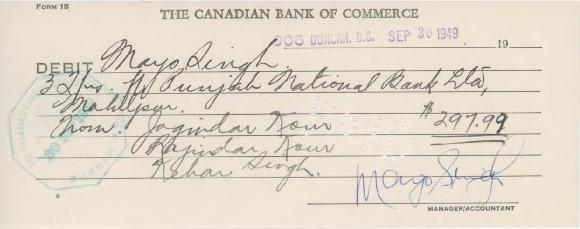 FORM 15
THE CANADIAN BANK OF COMMERCE
906 DUNCAN, B.C. SEP 30 1949 19
DEBIT Mayo Singh
3 Dfts. Punjab National Bank Ltd,
Mahilpur.
Nom. Jogindar Kour $297.99
Rajindar Kour
Kehar Singh.
Mayo Singh
MANAGER/ACCOUNTANT